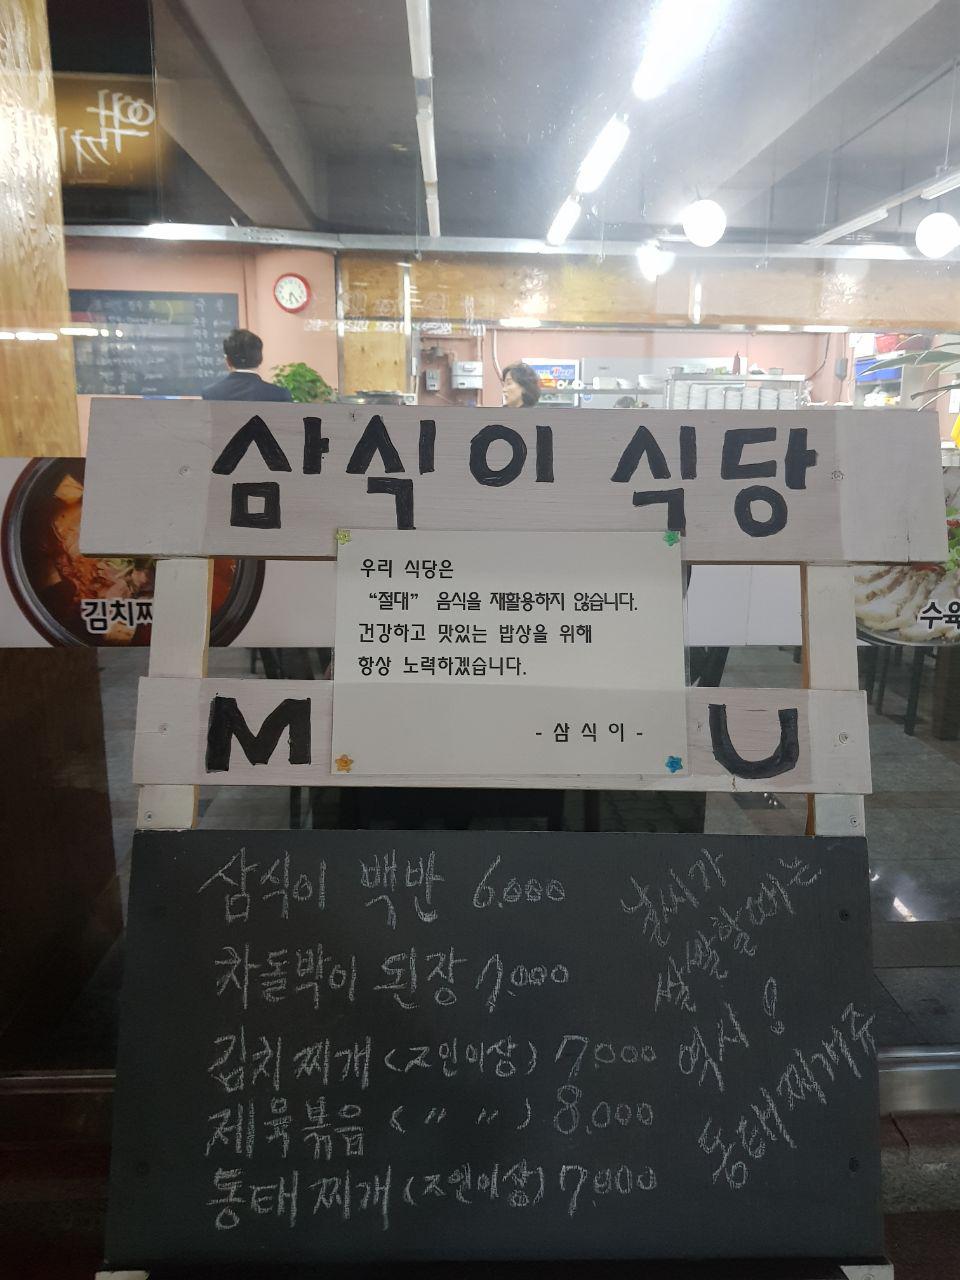 삼식이 식당
김치찌
수육
우리 식당은
“절대” 음식을 재활용하지 않습니다.
건강하고 맛있는 밥상을 위해
항상 노력하겠습니다.
- 삼 식 이 -
M U
삼식이 백반 6.000
차돌박이 된장 7.000
김치찌개 (2인이상) 7.000
제육볶음 ( 〃 〃 ) 8.000
통태찌개 (2인이상) 7.000
날씨가
쌀쌀할때는
역시!
동태찌개쥬